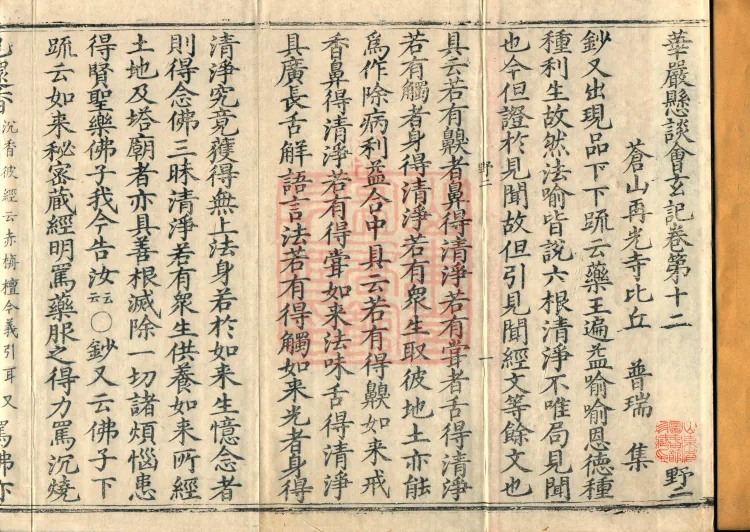 華嚴懸談會玄記卷第十二 野二
蒼山再光寺比丘 普瑞 集
鈔又出現品下下䟽云藥王遍益喻喻恩徳種
種利生故然法喻皆説六根清淨不唯局見聞
也今但證於見聞故但引見聞經文等餘文也
野二 一
具云若有齅者鼻得清淨若有甞者舌得清淨
若有觸者身得清淨若有衆生取彼地土亦能
爲作除病利益合中具云若有得齅如来戒
香鼻得清淨若有得甞如来法味舌得清淨
具廣長舌解語言法若有得觸如来光者身得
清淨究竟獲得無上法身若於如来生憶念者
則得念佛三昧清淨若有衆生供養如来所經
土地及塔廟者亦具善根滅除一切諸煩惱患
得賢聖藥佛子我今告汝云云〇鈔又云佛子下
䟽云如来秘密蔵經明罵藥服之得力罵沉燒
沉香彼經云赤栴檀今義引耳又 罵佛亦